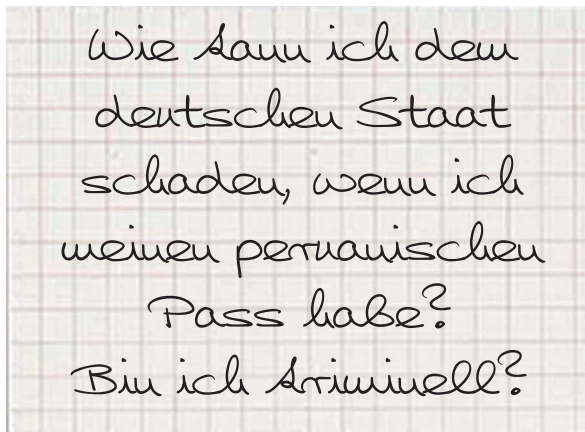 Wie kann ich dem
deutschen Staat
schaden, wenn ich
meinen peruanischen
Pass habe?
Bin ich kriminell?